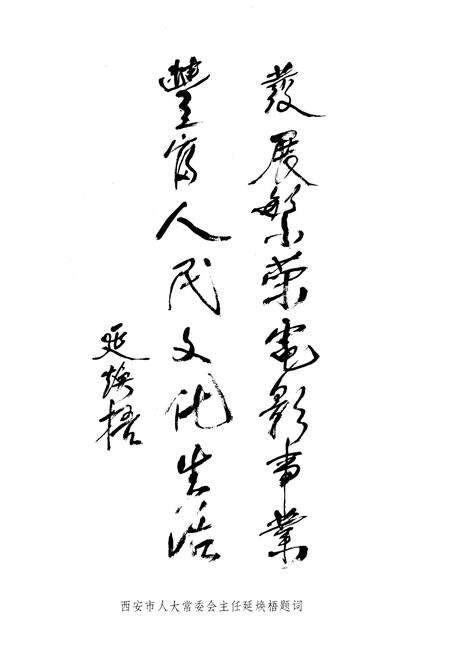 發展繁荣電影事業
豐富人民文化生活
延焕梧
西安市人大常委会主任延焕梧题词